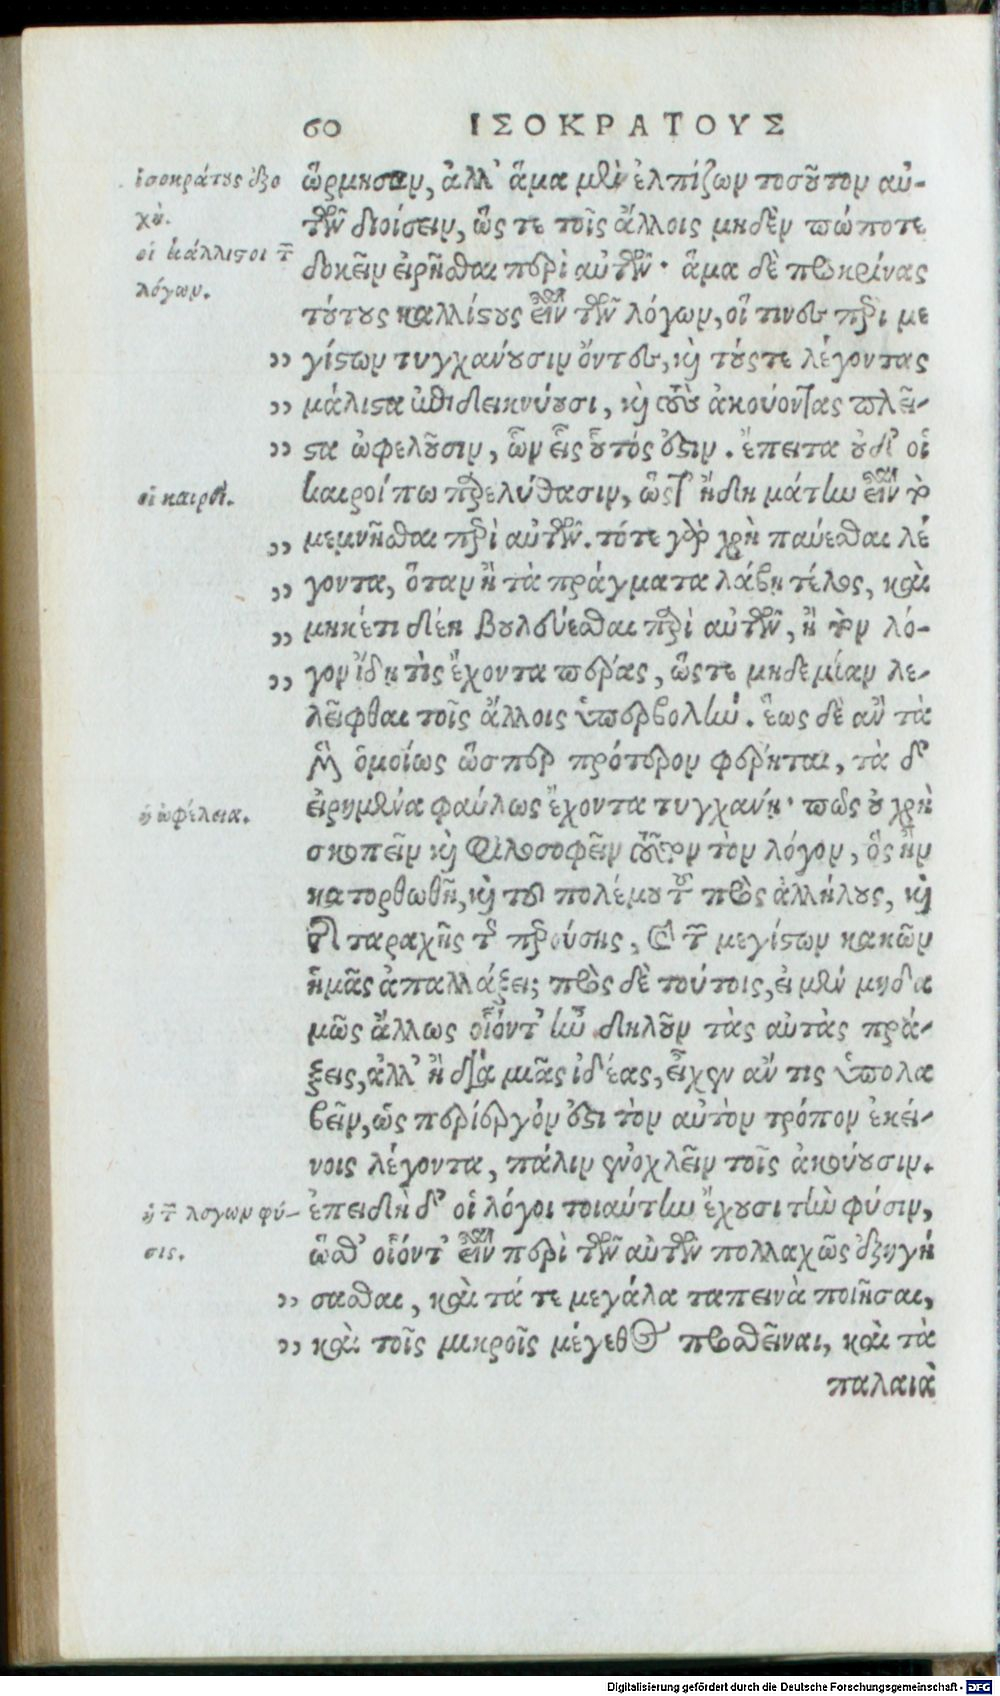 60 ΙΣΟΚΡΑΤΟΥΣ
ὥρμησαν, ἀλλ' ἅμα μὲν ἐλπίζων τοσοῦτον αὐ-
τῶν διοίσειν, ὥς τε τοῖς ἄλλοις μηδὲν πώποτε
δοκεῖν εἰρῆσθαι περὶ αὐτῶν· ἅμα δὲ προκρίνας
τούτους καλλίστους εἶναι τῶν λόγων, οἵ τινες περὶ με
γίστων τυγχανουσιν ὄντες, καὶ τούς τε λέγοντας
μάλιστα ἐπιδεικνύουσι, καὶ τοὺς ἀκούοντας πλεῖ-
στα ὠφελοῦσιν, ὧν εἷς οὗτός ἐστιν. ἔπειτα οὐδ' οἱ
καιροί πω παρεληλύθασιν, ὥστ' ἤδη μάτην εἶναι τὸ
μεμνῆσθαι περὶ αὐτῶν. τότε γὰρ χρὴ παύεσθαι λέ
γοντα, ὅταν ἢ τὰ πράγματα λάβῃ τέλος, καὶ
μηκέτι δέῃ βουλεύεσθαι περὶ αὐτῶν, ἢ τὸν λό-
γον ἴδῃ τὶς ἔχοντα πέρας, ὥστε μηδεμίαν λε-
λεῖφθαι τοῖς ἄλλοις ὑπερβολήν. ἕως δὲ ἂν τὰ
μὲν ὁμοίως ὥσπερ πρότερον φέρηται, τὰ δ'
εἰρημένα φαύλως ἔχοντα τυγχανῃ· πῶς οὐ χρὴ
σκοπεῖν καὶ φιλοσοφεῖν τοῦτον τὸν λόγον, ὃς ἢν
κατορθωθῇ, καὶ τοῦ πολέμου τοῦ πρὸς ἀλλήλους, καὶ
τῆς ταραχῆς τῆς παρούσης, καὶ τῶν μεγίστων κακῶν
ἡμᾶς ἀπαλλάξει; πρὸς δὲ τούτοις, εἰ μὲν μηδα
μῶς ἄλλως οἷόντ' ἦν δηλοῦν τὰς αὐτὰς πρά-
ξεις, ἀλλ' ἢ διὰ μιᾶς ἰδέας, εἶχεν ἄν τις ὑπολα
βεῖν, ὡς περίεργόν ἐστι τὸν αὐτὸν τρόπον ἐκεί-
νοις λέγοντα, πάλιν ἐνοχλεῖν τοῖς ἀκούουσιν.
ἐπειδὴ δ' οἱ λόγοι τοιαύτην ἔχουσι τὴν φύσιν,
ὥσθ' οἷόντ' εἶναι περὶ τῶν αὐτῶν πολλαχῶς ἐξηγή
σασθαι, καὶ τά τε μεγάλα ταπεινὰ ποιῆσαι,
καὶ τοῖς μικροῖς μέγεθος προσθεῖναι, καὶ τὰ
παλαιὰ
ἰσοκράτους ἐξο
χή.
οἱ κάλλιστοι τῶν
λόγων.
οἱ καιροί.
ἡ ὠφέλεια.
ἡ τῶν λόγων φύ-
σις.
Digitalisierung gefördert durch die Deutsche Forschungsgemeinschaft - DFG